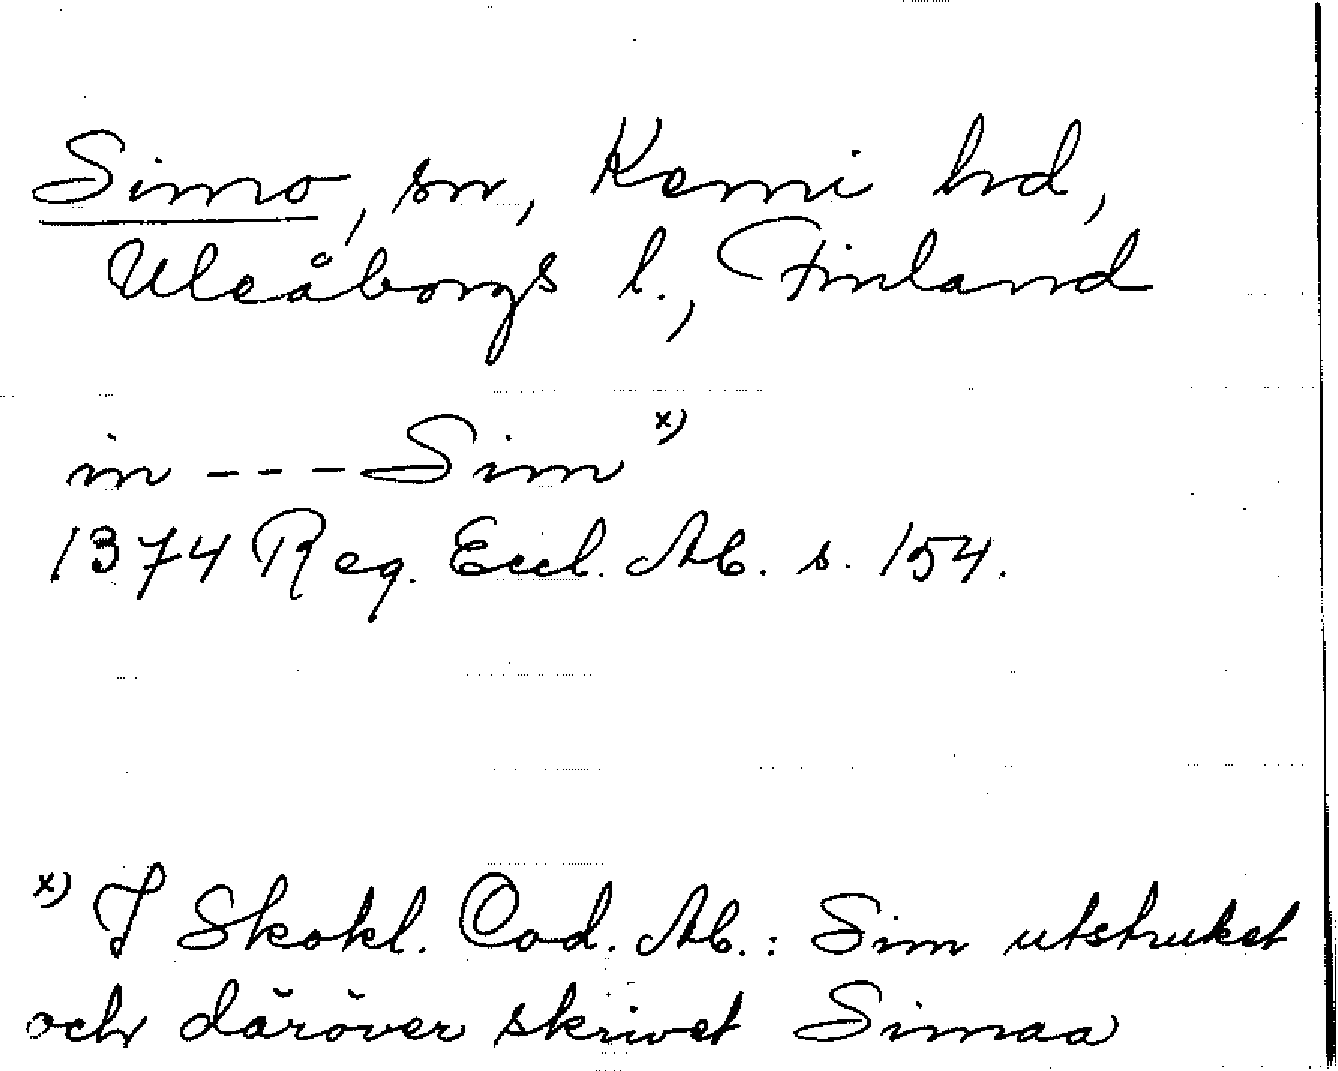 Simo, sn, Kemi hd,
Uleåborgs l., Finland
in --- Sim x)
1374 Reg. Eccl. Ab. s. 154.
x) I Skokl. Cod. Ab.: Sim utstruket
och däröver skrivet Simaa